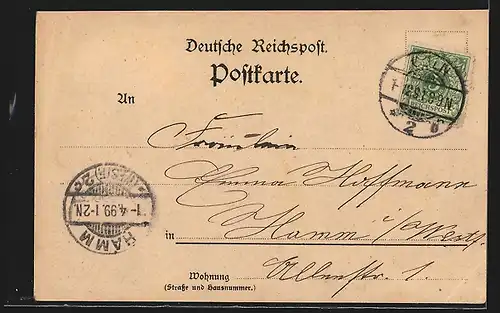 Deutsche Reichspost.
Postkarte.
An
Fräulein
Emma Hoffmann
in Hamm i/Westf.
Wohnung
(Straße und Hausnummer.)
Allenstr. 1.
1-4.99.1-2N.
HAMM
2